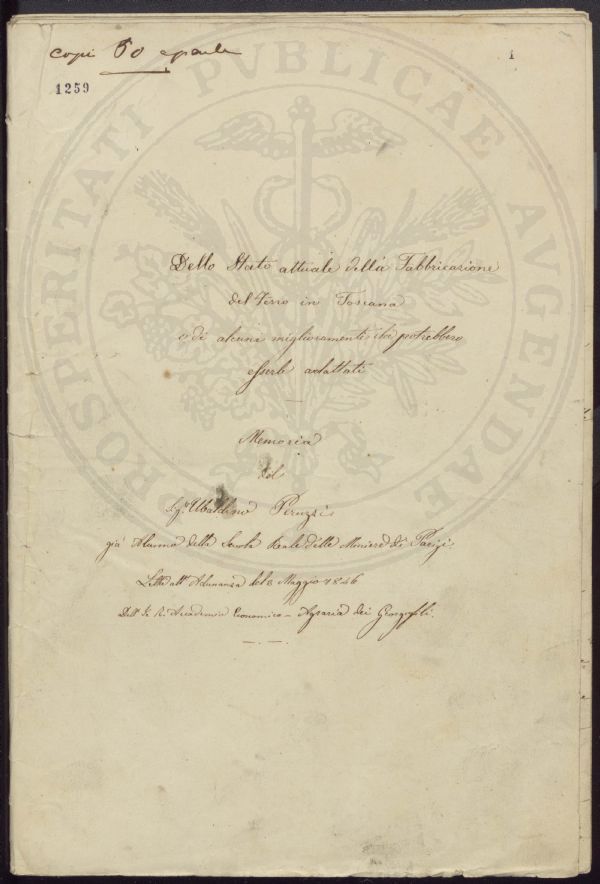 copie 50 a parte
1
1259
PROSPERITATI PVBLICAE AVGENDAE
Dello Stato attuale della Fabbricazione
del Ferro in Toscana
e di alcuni miglioramenti che potrebbero
esserle adattati
Memoria
del
Sig.r Ubaldino Peruzzi
già Alunno della Scuola Reale delle Miniere di Parigi.
Letta all' Adunanza del Maggio 1846
Dell' I. R. Accademia Economico - Agraria dei Georgofili.